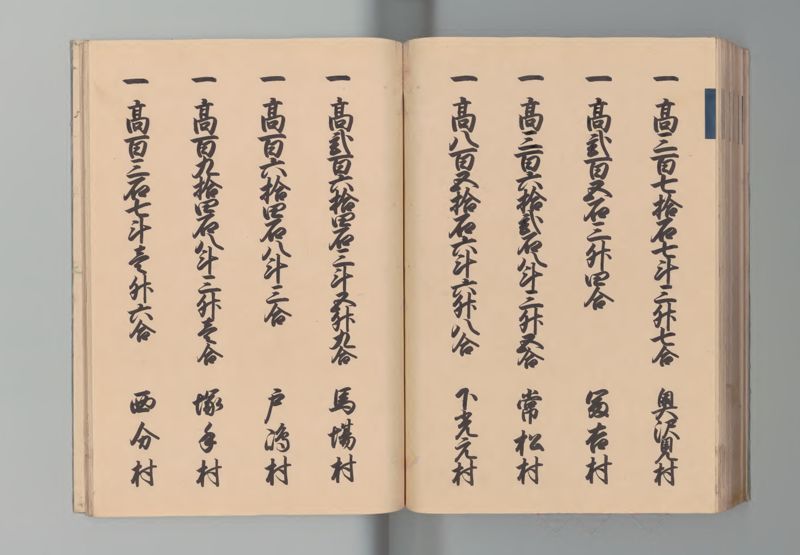 一高三百七拾石七斗三升七合 奥沢見村
一高弐百五石三升四合 冨吉村
一高三百六拾弐石八斗三升五合 常松村
一高八百五拾石六斗六升八合 下光元村
一高弐百六拾四石三斗五升九合 馬場村
一高百六拾四石八斗三合 戸嶋村
一高百九拾四石八斗三升壱合 塚手村
一高百三石七斗壱升六合 西分村